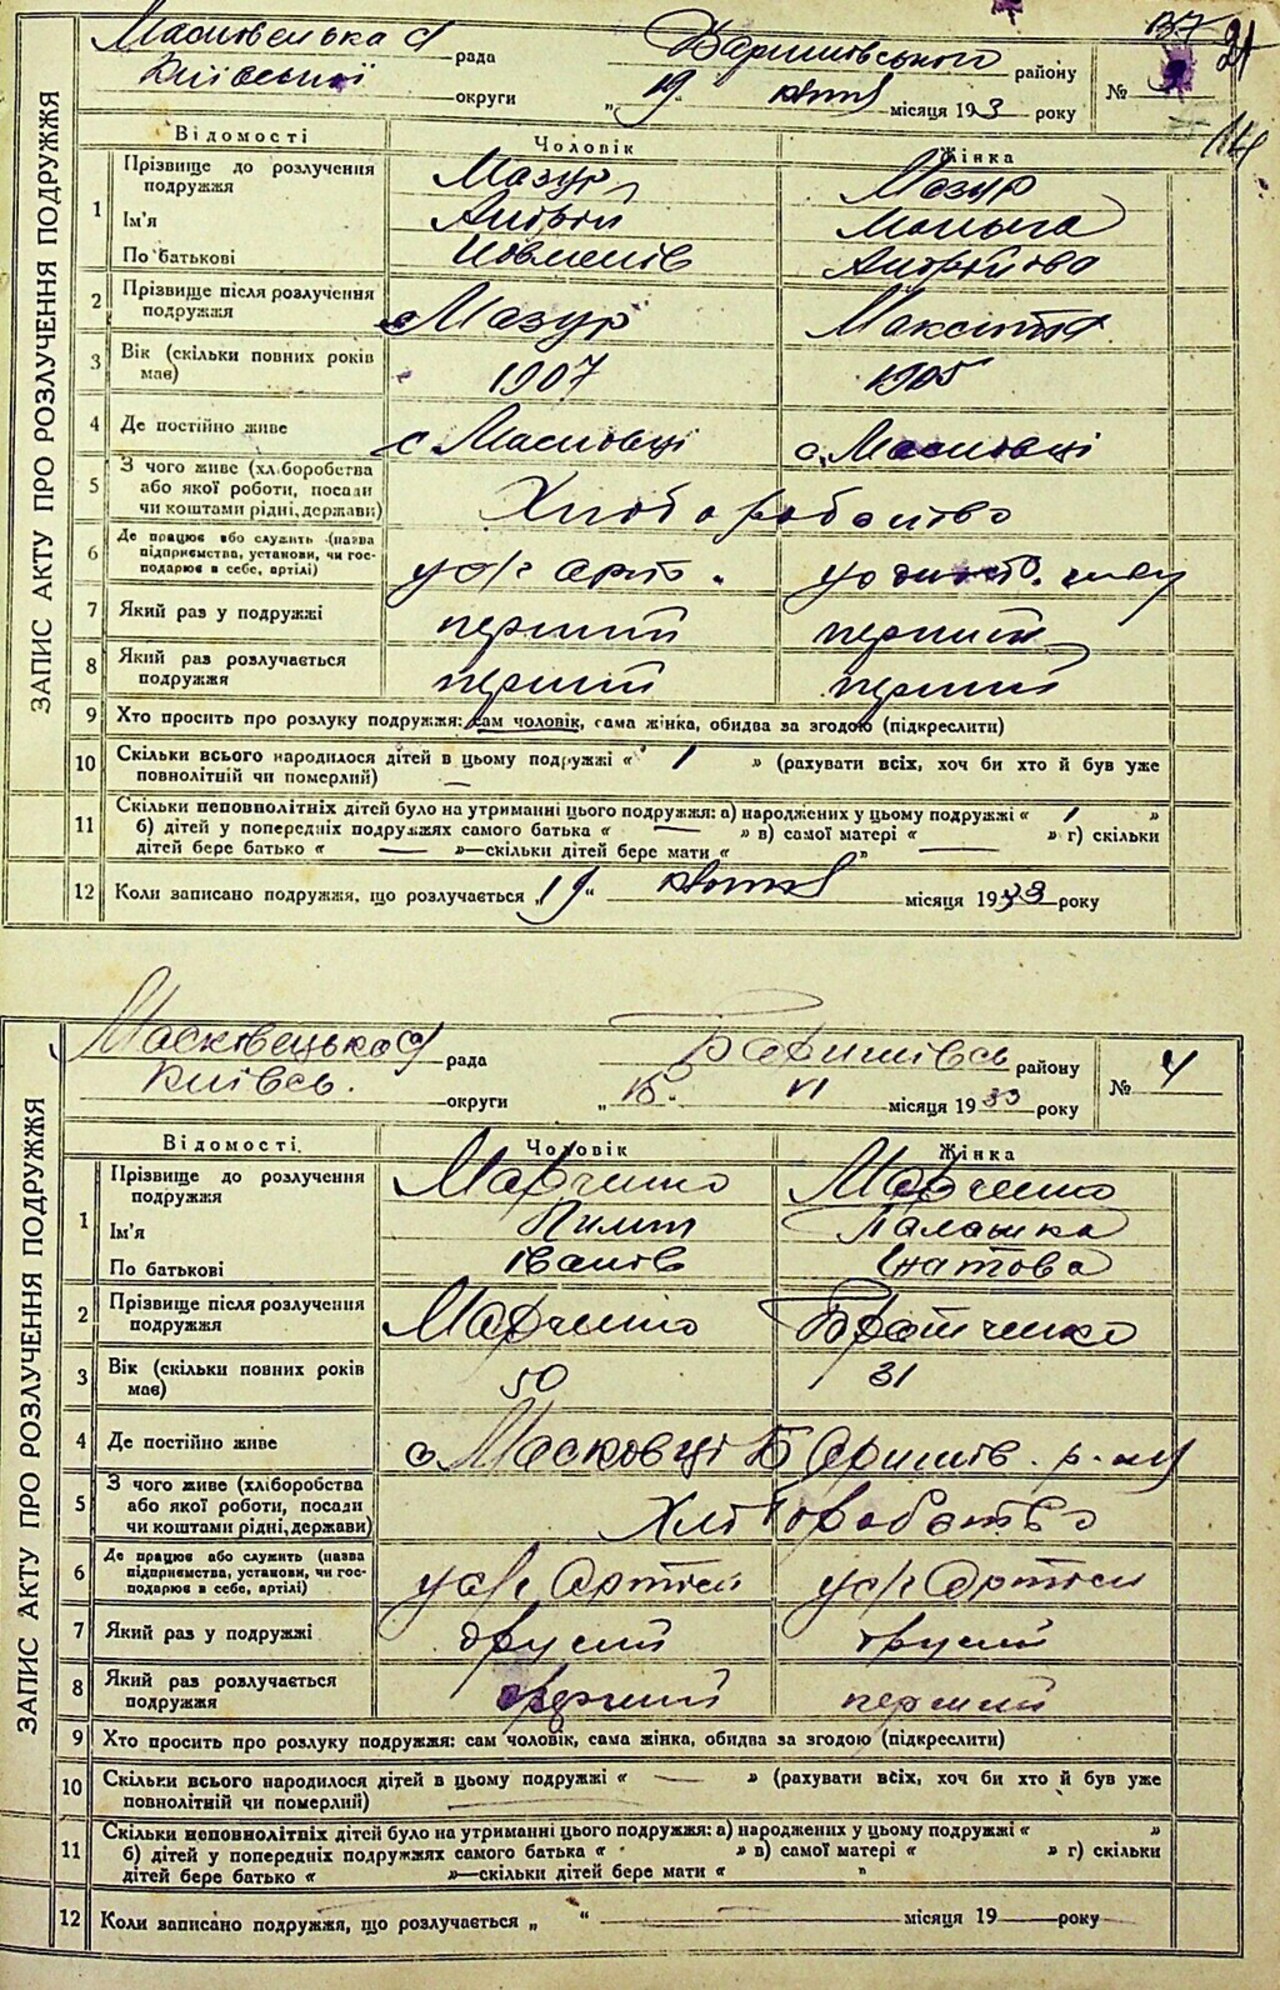 137 21
114
ЗАПИС АКТУ ПРО РОЗЛУЧЕННЯ ПОДРУЖЖЯ
Масковецька рада Баришівського району №
Київської округи „19“ квітня місяця 1933 року
Відомості Чоловік Жінка
1 Прізвище до розлучення подружжя Мазур Мазур
Ім'я Андрій
По батькові Андрійова
2 Прізвище після розлучення подружжя Мазур
3 Вік (скільки повних років має) 1907 1905
4 Де постійно живе с. Масковці с. Масковці
5 З чого живе (хліборобства або якої роботи, посади чи коштами рідні, держави) Хліборобство
6 Де працює або служить (назва підприємства, установи, чи господарює в себе, артілі) у с/г арт.
7 Який раз у подружжі перший перший
8 Який раз розлучається подружжя перший перший
9 Хто просить про розлуку подружжя: сам чоловік, сама жінка, обидва за згодою (підкреслити)
10 Скільки всього народилося дітей в цьому подружжі « 1 » (рахувати всіх, хоч би хто й був уже
повнолітній чи померлий) —
11 Скільки неповнолітніх дітей було на утриманні цього подружжя: а) народжених у цьому подружжі « 1 »
б) дітей у попередніх подружжях самого батька « — » в) самої матері « » г) скільки
дітей бере батько « — »—скільки дітей бере мати « ” —
12 Коли записано подружжя, що розлучається „19“ квітня місяця 1933 року
ЗАПИС АКТУ ПРО РОЗЛУЧЕННЯ ПОДРУЖЖЯ
Масковецька рада Баришівсь району № 4
Київсь. округи „15“ VI місяця 1933 року
Відомості Чоловік Жінка
1 Прізвище до розлучення подружжя Марченко Марченко
Ім'я Пилип Палажка
По батькові Іванів Ігнатова
2 Прізвище після розлучення подружжя Марченко Братченко
3 Вік (скільки повних років має) 50 31
4 Де постійно живе с Масковці Баришів. р-ну
5 З чого живе (хліборобства або якої роботи, посади чи коштами рідні, держави) Хліборобство
6 Де працює або служить (назва підприємства, установи, чи господарює в себе, артілі) у с/г Артілі у с/г Артілі
7 Який раз у подружжі другий другий
8 Який раз розлучається подружжя перший перший
9 Хто просить про розлуку подружжя: сам чоловік, сама жінка, обидва за згодою (підкреслити)
10 Скільки всього народилося дітей в цьому подружжі « — » (рахувати всіх, хоч би хто й був уже
повнолітній чи померлий)
11 Скільки неповнолітніх дітей було на утриманні цього подружжя: а) народжених у цьому подружжі « »
б) дітей у попередніх подружжях самого батька « » в) самої матері « » г) скільки
дітей бере батько « »—скільки дітей бере мати « ”
12 Коли записано подружжя, що розлучається „ “ — місяця 19 — року